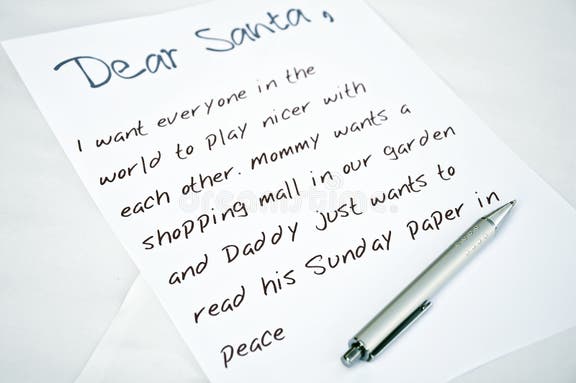 Dear Santa,
I want everyone in the
world to play nicer with
each other. Mommy wants a
shopping mall in our garden
and Daddy just wants to
read his Sunday paper in
peace